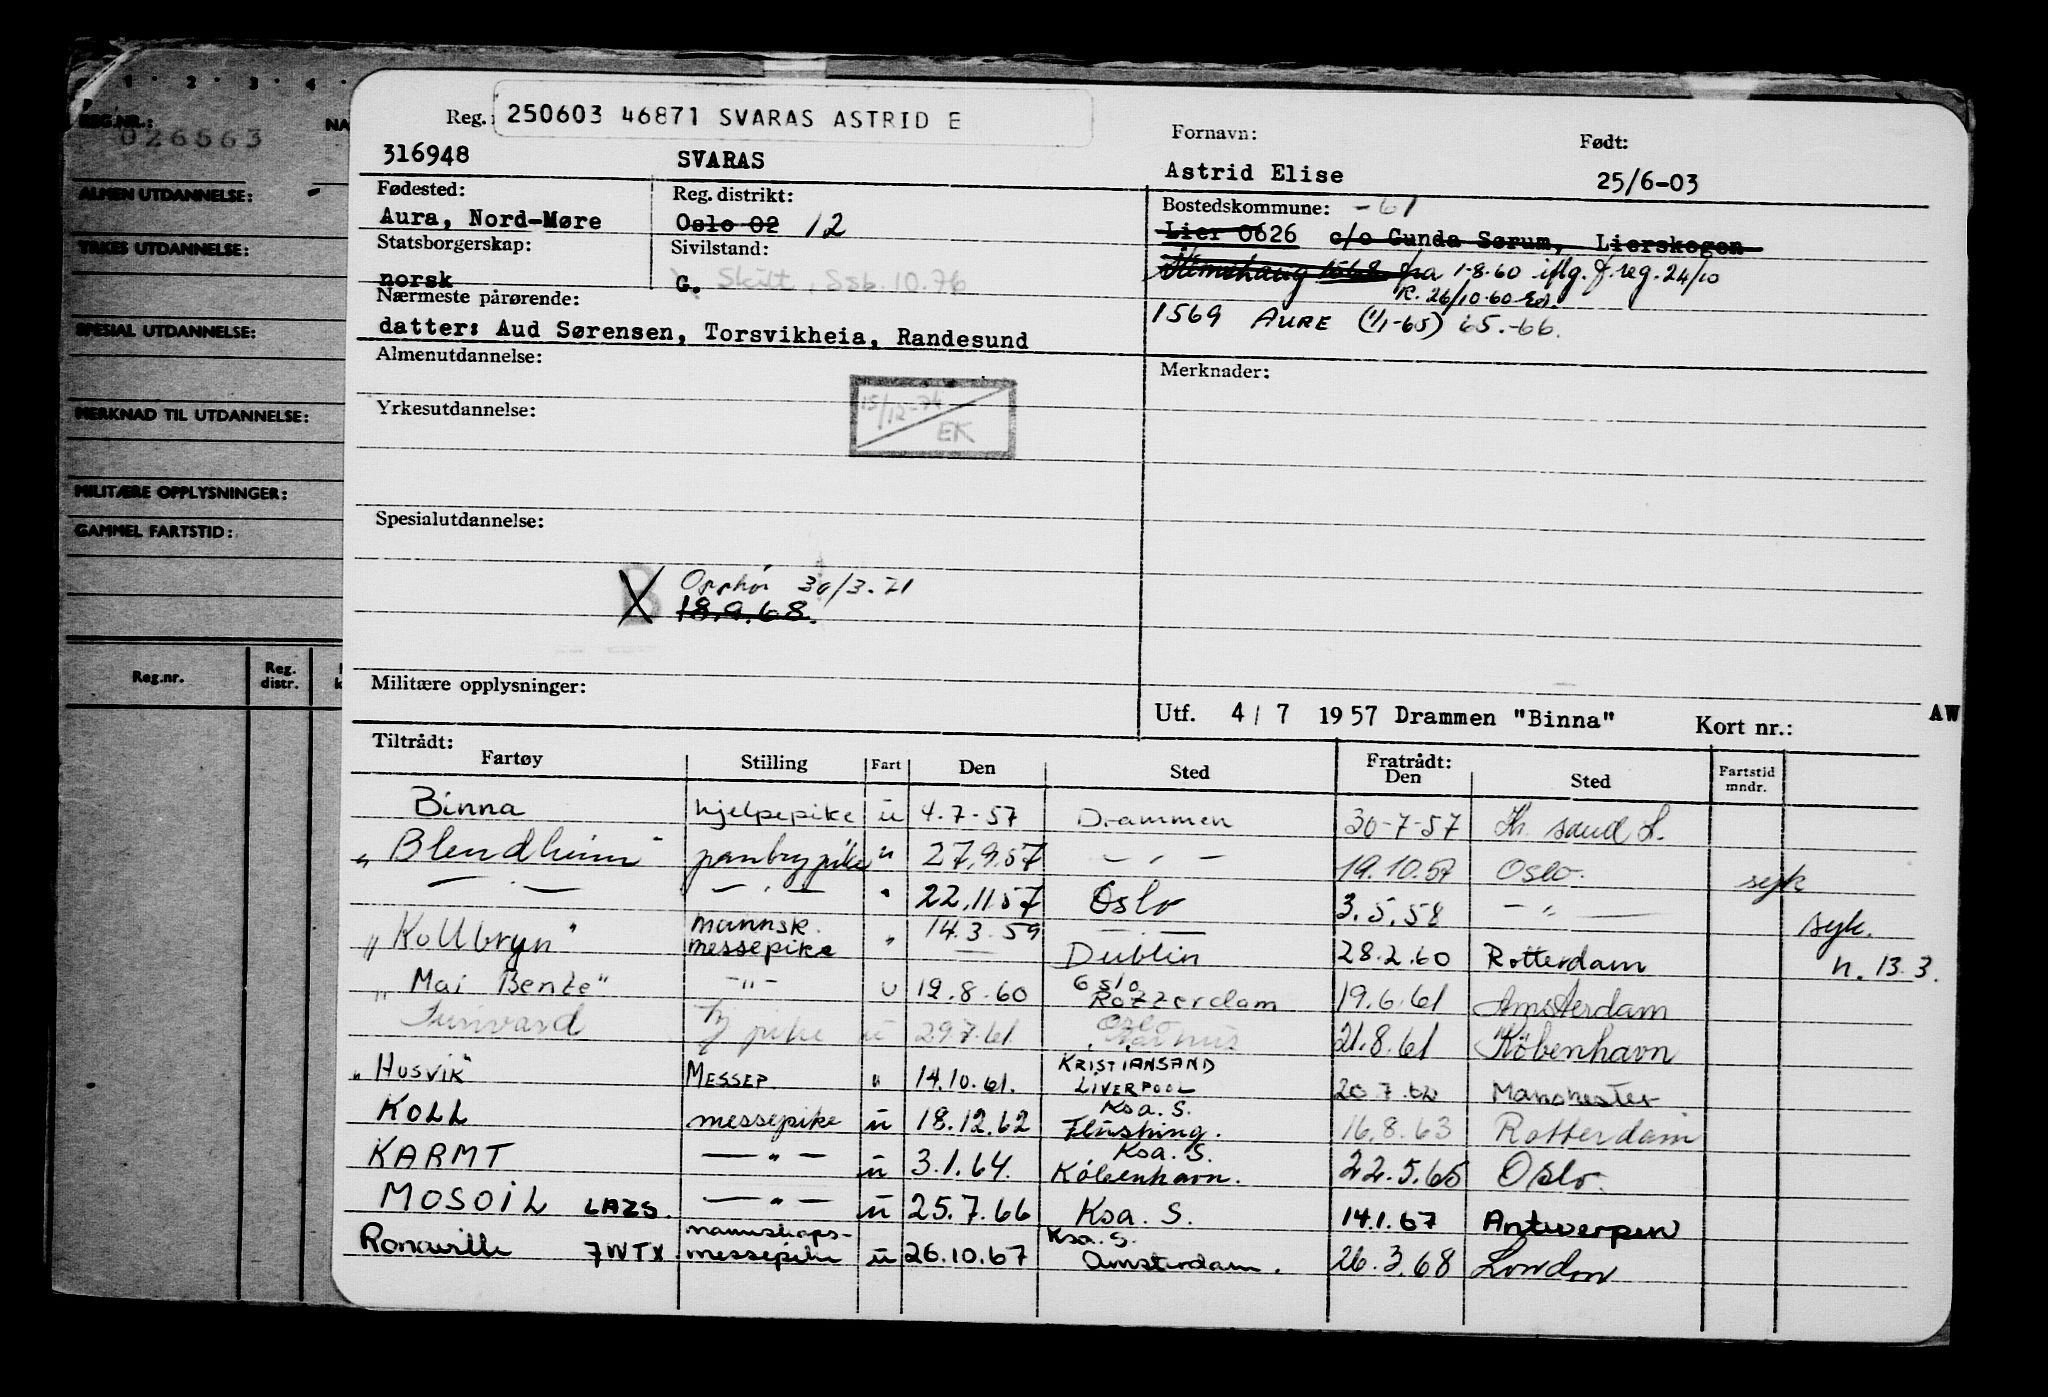 1 · 2 · 3 · 4 ·
REG.NR.: NA
026563
ALMEN UTDANNELSE:
YRKES UTDANNELSE:
SPESIAL UTDANNELSE:
MERKNAD TIL UTDANNELSE:
MILITÆRE OPPLYSNINGER:
GAMMEL FARTSTID:
Reg.nr. Reg. distr. k
Reg. 250603 46871 SVARAS ASTRID E Fornavn: Født:
316948 SVARAS Astrid Elise 25/6-03
Fødested: Reg. distrikt: Bostedskommune: -61
Aura, Nord-Møre Oslo 02 12 Lier 0626 c/o Gunda Sørum, Lierskogen
Statsborgerskap: Sivilstand: 1568 fra 1-8.60 iflg. f. reg. 24/10
norsk G. Skilt, Ssb. 10.76 K. 26/10-60
Nærmeste pårørende: 1569 AURE (1/1-65) 65.-66.
datter: Aud Sørensen, Torsvikheia, Randesund
Almenutdannelse: Merknader:
15/12-74 EK
Yrkesutdannelse:
Spesialutdannelse:
B Opphør 30/3.71
18.9.68.
Militære opplysninger:
Utf. 4/7 1957 Drammen "Binna" Kort nr.: AW
Tiltrådt: Fratrådt:
Fartøy Stilling Fart Den Sted Den Sted Fartstid mndr.
Binna hjelpepike u 4.7-57 Drammen 30-7-57 Kr. sand S.
"Blendheim" panbrypike " 27.9.57 — " — 19.10.57 Oslo. syk
— " — — " — " 22.11.57 Oslo 3.5.58 — " — syk.
"Kollbryn" mannsk. messepike " 14.3.59 — Dublin 28.2.60 Rotterdam n. 13.3.
"Mai Bente" — " — u 12.8.60 Oslo Rotterdam 19.6.61 Amsterdam
pike u 29.7.61 Oslo Aarhus 21.8.61 København
"HUSVIK" MESSEP. " 14.10.61. KRISTIANSAND LIVERPOOL 20.7.62 Manchester
KOLL messepike u 18.12.62 Ksa. S. Flushing. 16.8.63 Rotterdam
KARMT — " — u 3.1.64. Ksa. S. København. 22.5.65 Oslo.
MOSOIL LAZS. — " — u 25.7.66 Ksa. S. 14.1.67 Antwerpen
Ronaville 7WTX. mannskaps-messepike u 26.10.67 Ksa. S. Amsterdam. 26.3.68 London